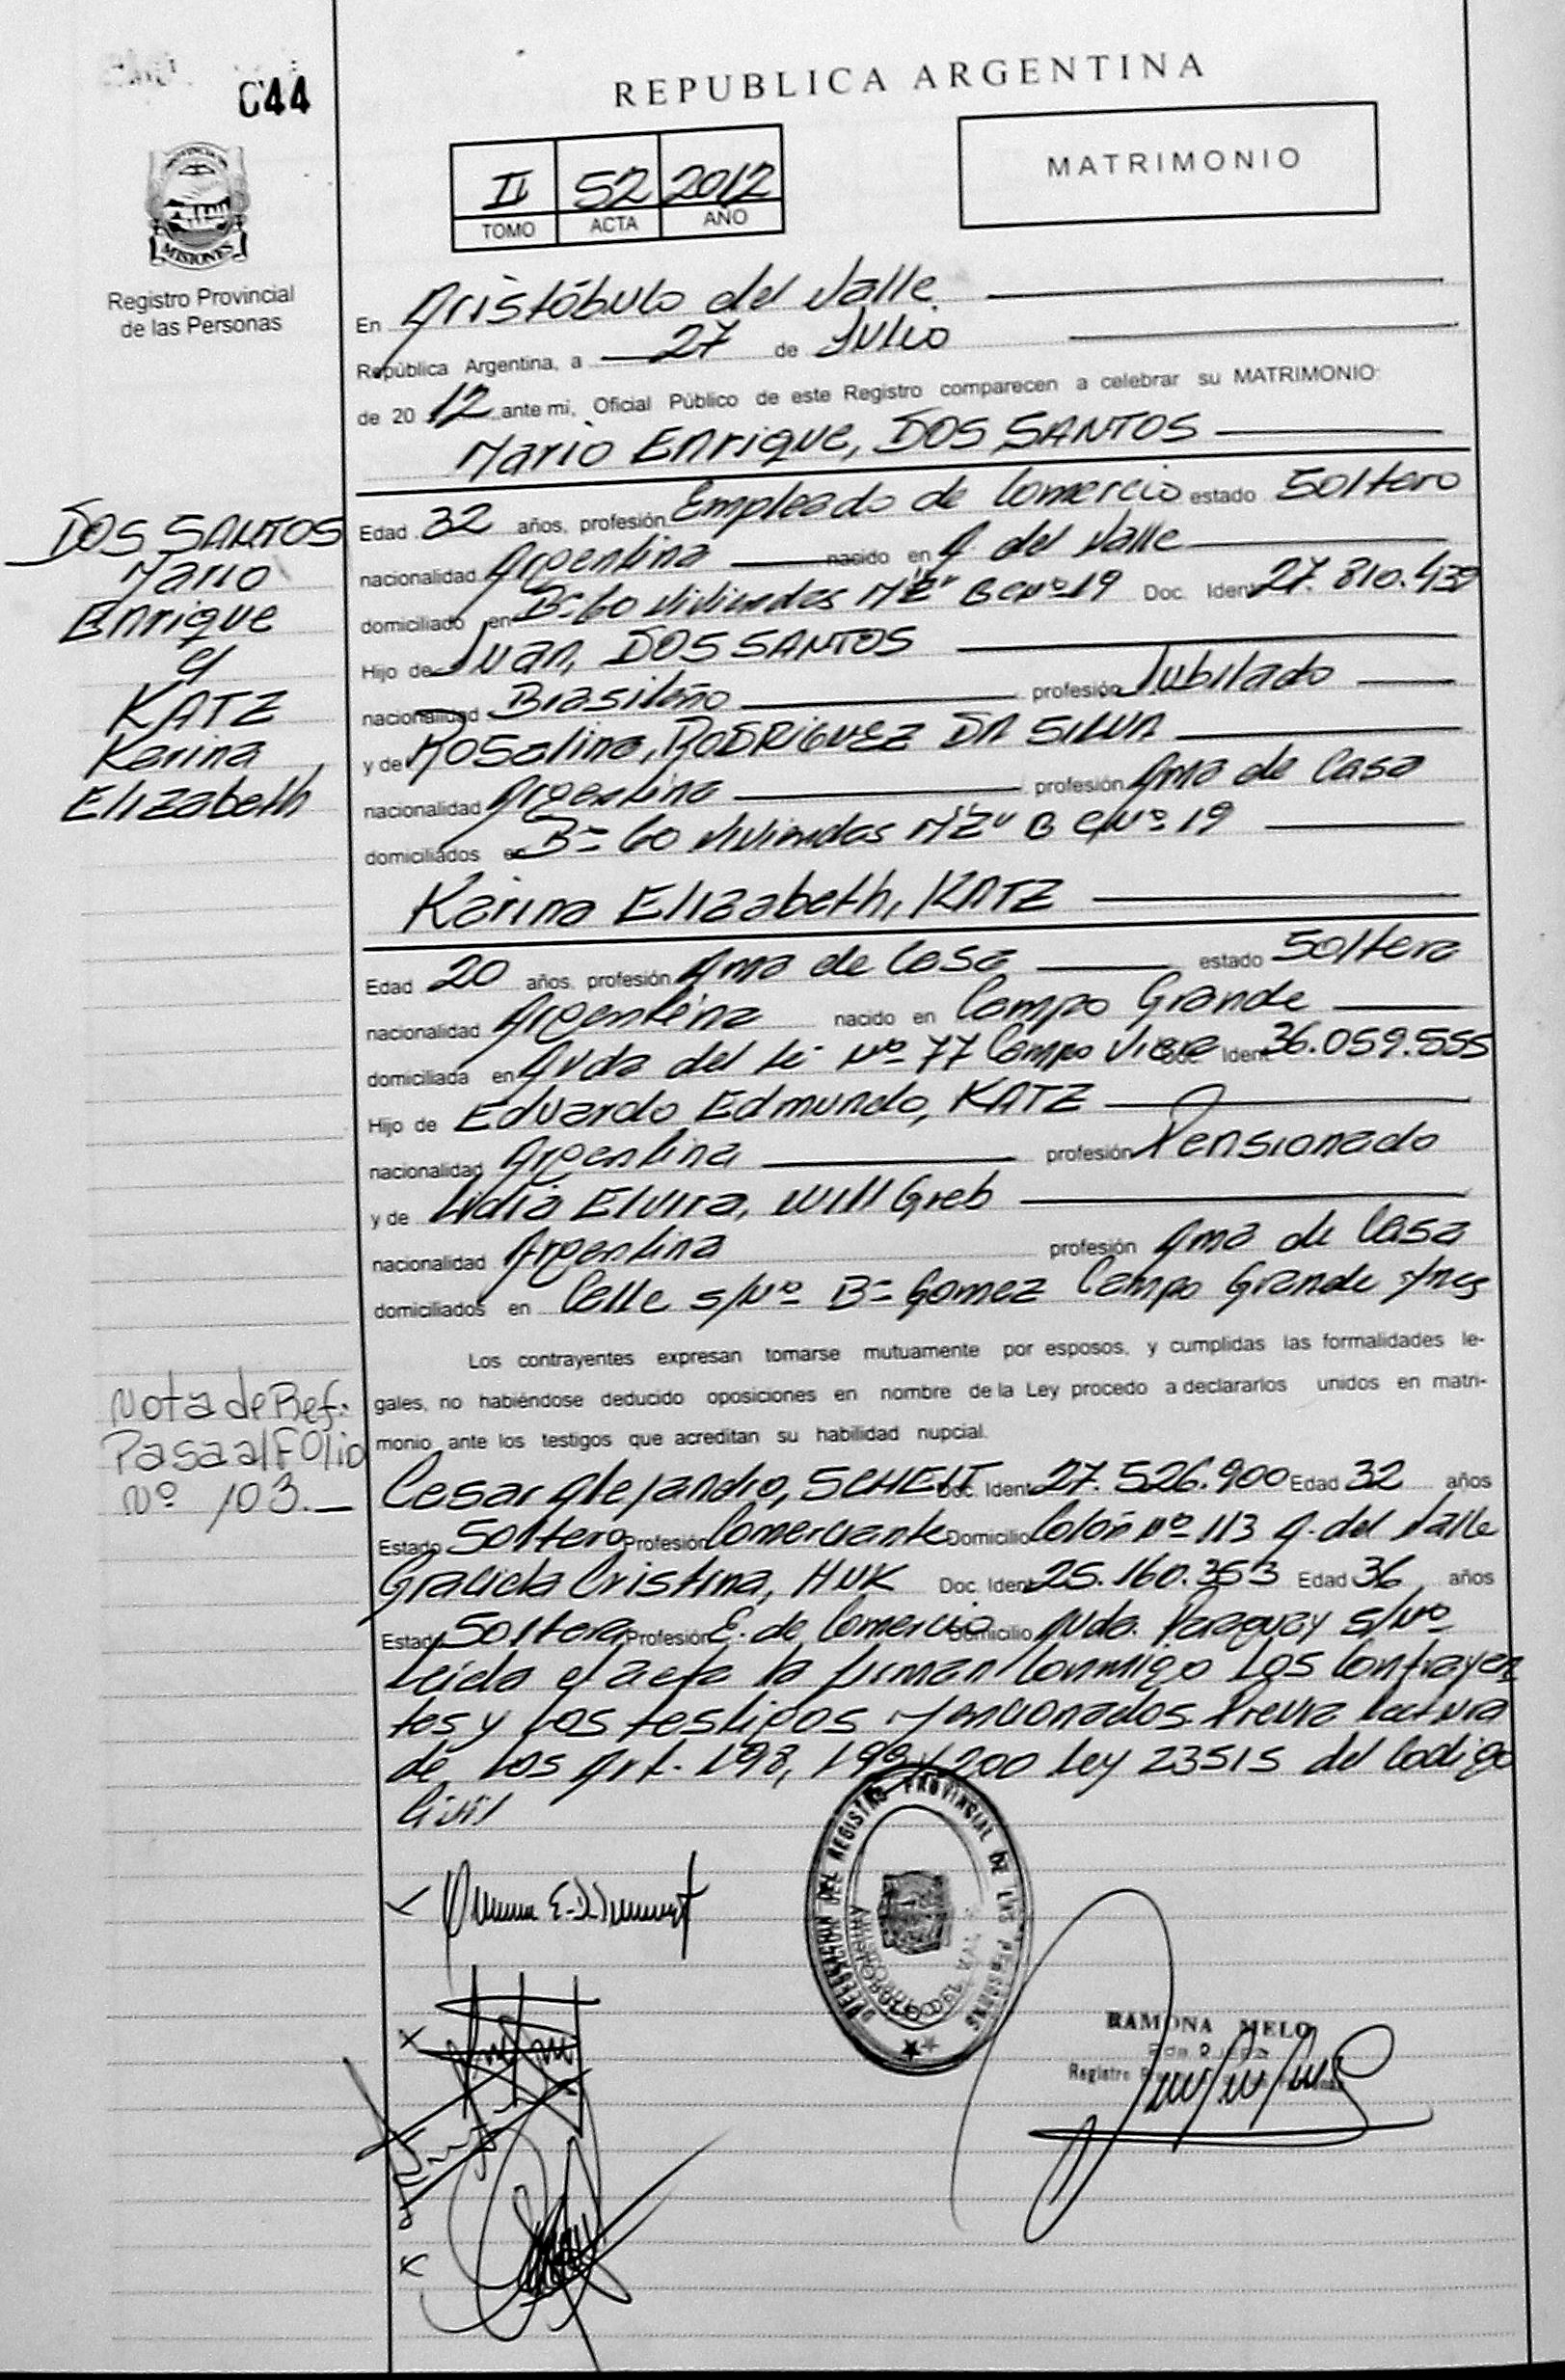 C44
REPUBLICA ARGENTINA
MATRIMONIO
II 52 2012
TOMO ACTA AÑO
PROVINCIA DE
MISIONES
Registro Provincial
de las Personas
En Aristóbulo del Valle
República Argentina, a 27 de Julio
de 20 12 ante mi, Oficial Público de este Registro comparecen a celebrar su MATRIMONIO:
Mario Enrique, DOS SANTOS
DOS SANTOS
Mario
Enrique
y
KATZ
Karina
Elizabeth
Edad 32 años, profesión Empleado de Comercio estado Soltero
nacionalidad Argentina nacido en A. del Valle
domiciliado en B= 60 Viviendas MZ" B C Nº 19 Doc. Ident. 27.810.439
Hijo de Juan, DOS SANTOS
nacionalidad Brasileño profesión Jubilado
y de Rosalina, RODRIGUEZ DA SILVA
nacionalidad Argentina profesión Ama de Casa
domiciliados en B= 60 Viviendas MZ" B C Nº 19
Karina Elizabeth, KATZ
Edad 20 años, profesión Ama de Casa estado Soltera
nacionalidad Argentina nacido en Campo Grande
domiciliada en Avda del té Nº 77 Campo Viera Doc. Ident. 36.059.555
Hijo de Eduardo Edmundo, KATZ
nacionalidad Argentina profesión Pensionado
y de Lidia Elvira, Will Greb
nacionalidad Argentina profesión Ama de Casa
domiciliados en Calle s/Nº B= Gomez Campo Grande
Los contrayentes expresan tomarse mutuamente por esposos, y cumplidas las formalidades le-
gales, no habiéndose deducido oposiciones en nombre de la Ley procedo a declararlos unidos en matri-
monio ante los testigos que acreditan su habilidad nupcial.
Nota de Ref.
Pasa al Folio
Nº 103.-
Cesar Alejandro, SCHEIT Doc. Ident. 27.526.900 Edad 32 años
Estado Soltero Profesión Comerciante Domicilio Colón Nº 113 A. del Valle
Graciela Cristina, HUK Doc. Ident. 25.160.353 Edad 36 años
Estado Soltera Profesión E. de Comercio Domicilio Avda. Paraguay s/Nº
Leida el acta la firman Conmigo Los Contrayen
tes y los testigos Mencionados Previa lectura
de Los Art. 198, 199 y 200 Ley 23515 del Codigo
Civil
DELEGACION DEL REGISTRO PROVINCIAL DE LAS PERSONAS
ARISTOBULO DEL VALLE
RAMONA MELO
Registro